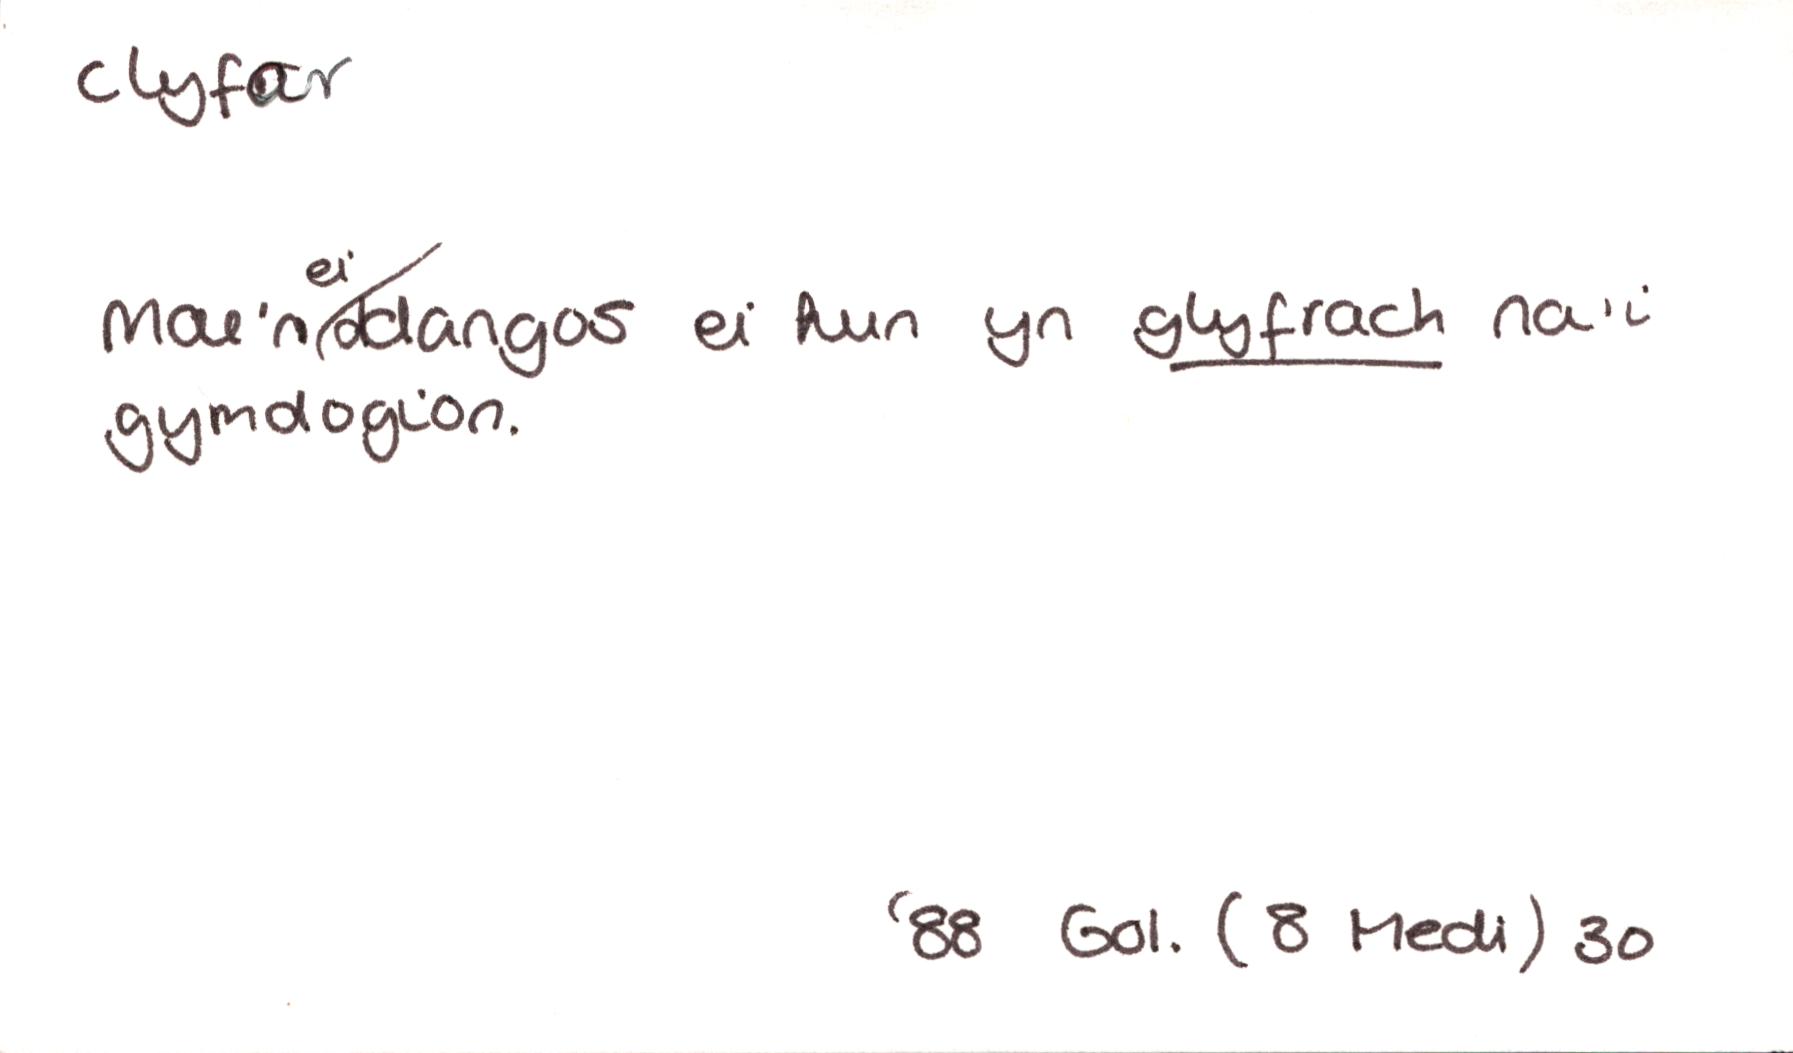 clyfar
Mae'n ei ddangos ei hun yn glyfrach na'i
gymdogion.
'88 Gol. (8 Medi) 30